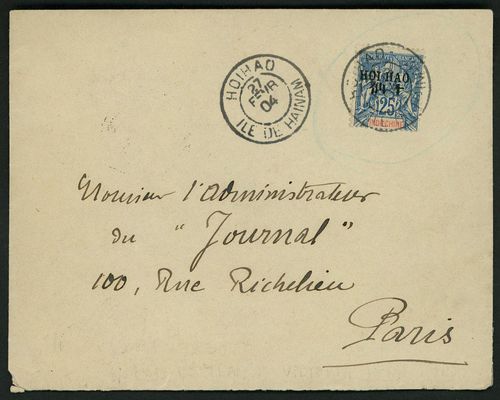 HOIHAO
27
FEVR
04
ILE DE HAINAM
HOI HAO
25
INDO-CHINE
Monsieur l'Administrateur
du "Journal"
100, Rue Richelieu
Paris